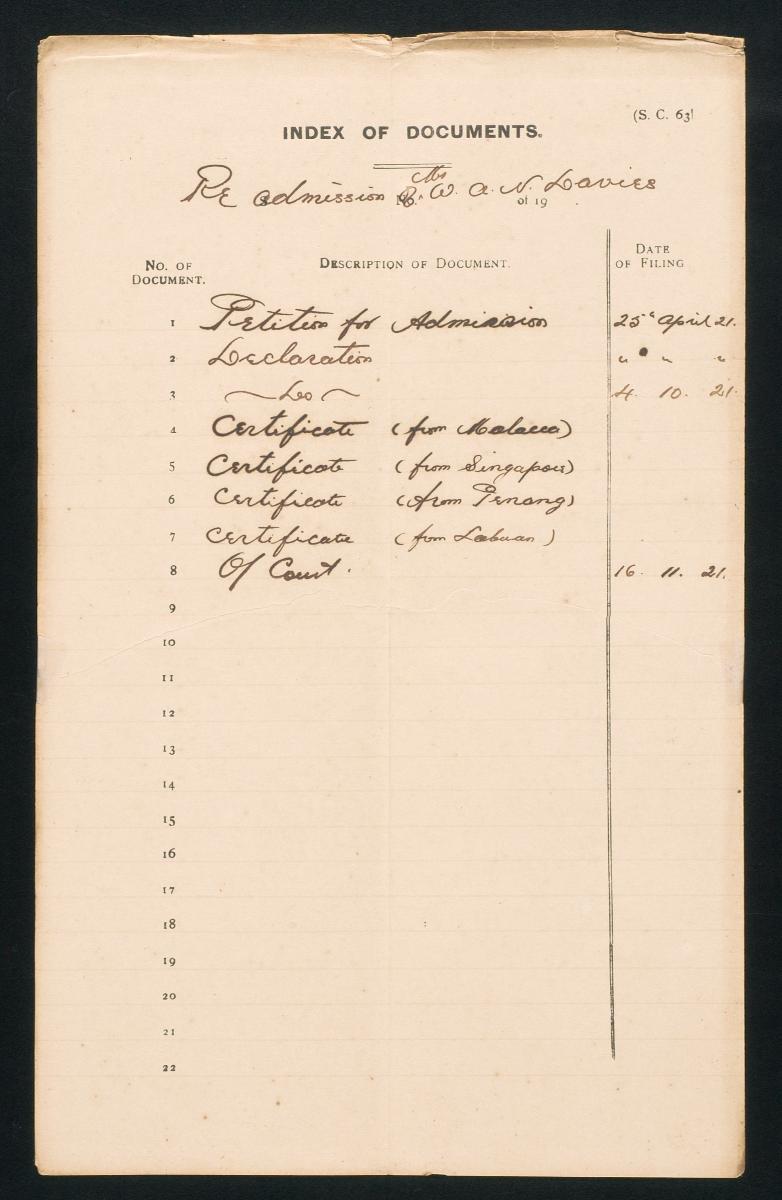 (S. C. 63)
INDEX OF DOCUMENTS.
Re admission of Mr W. A. N. Davies
No. of 19 .
No. of Document. Description of Document. Date of Filing
1 Petition for Admission 25" April 21.
2 Declaration " " "
3 — Do — 4. 10. 21.
4 Certificate (from Malacca)
5 Certificate (from Singapore)
6 Certificate (from Penang)
7 Certificate (from Labuan)
8 O/ Court. 16. 11. 21.
9
10
11
12
13
14
15
16
17
18
19
20
21
22